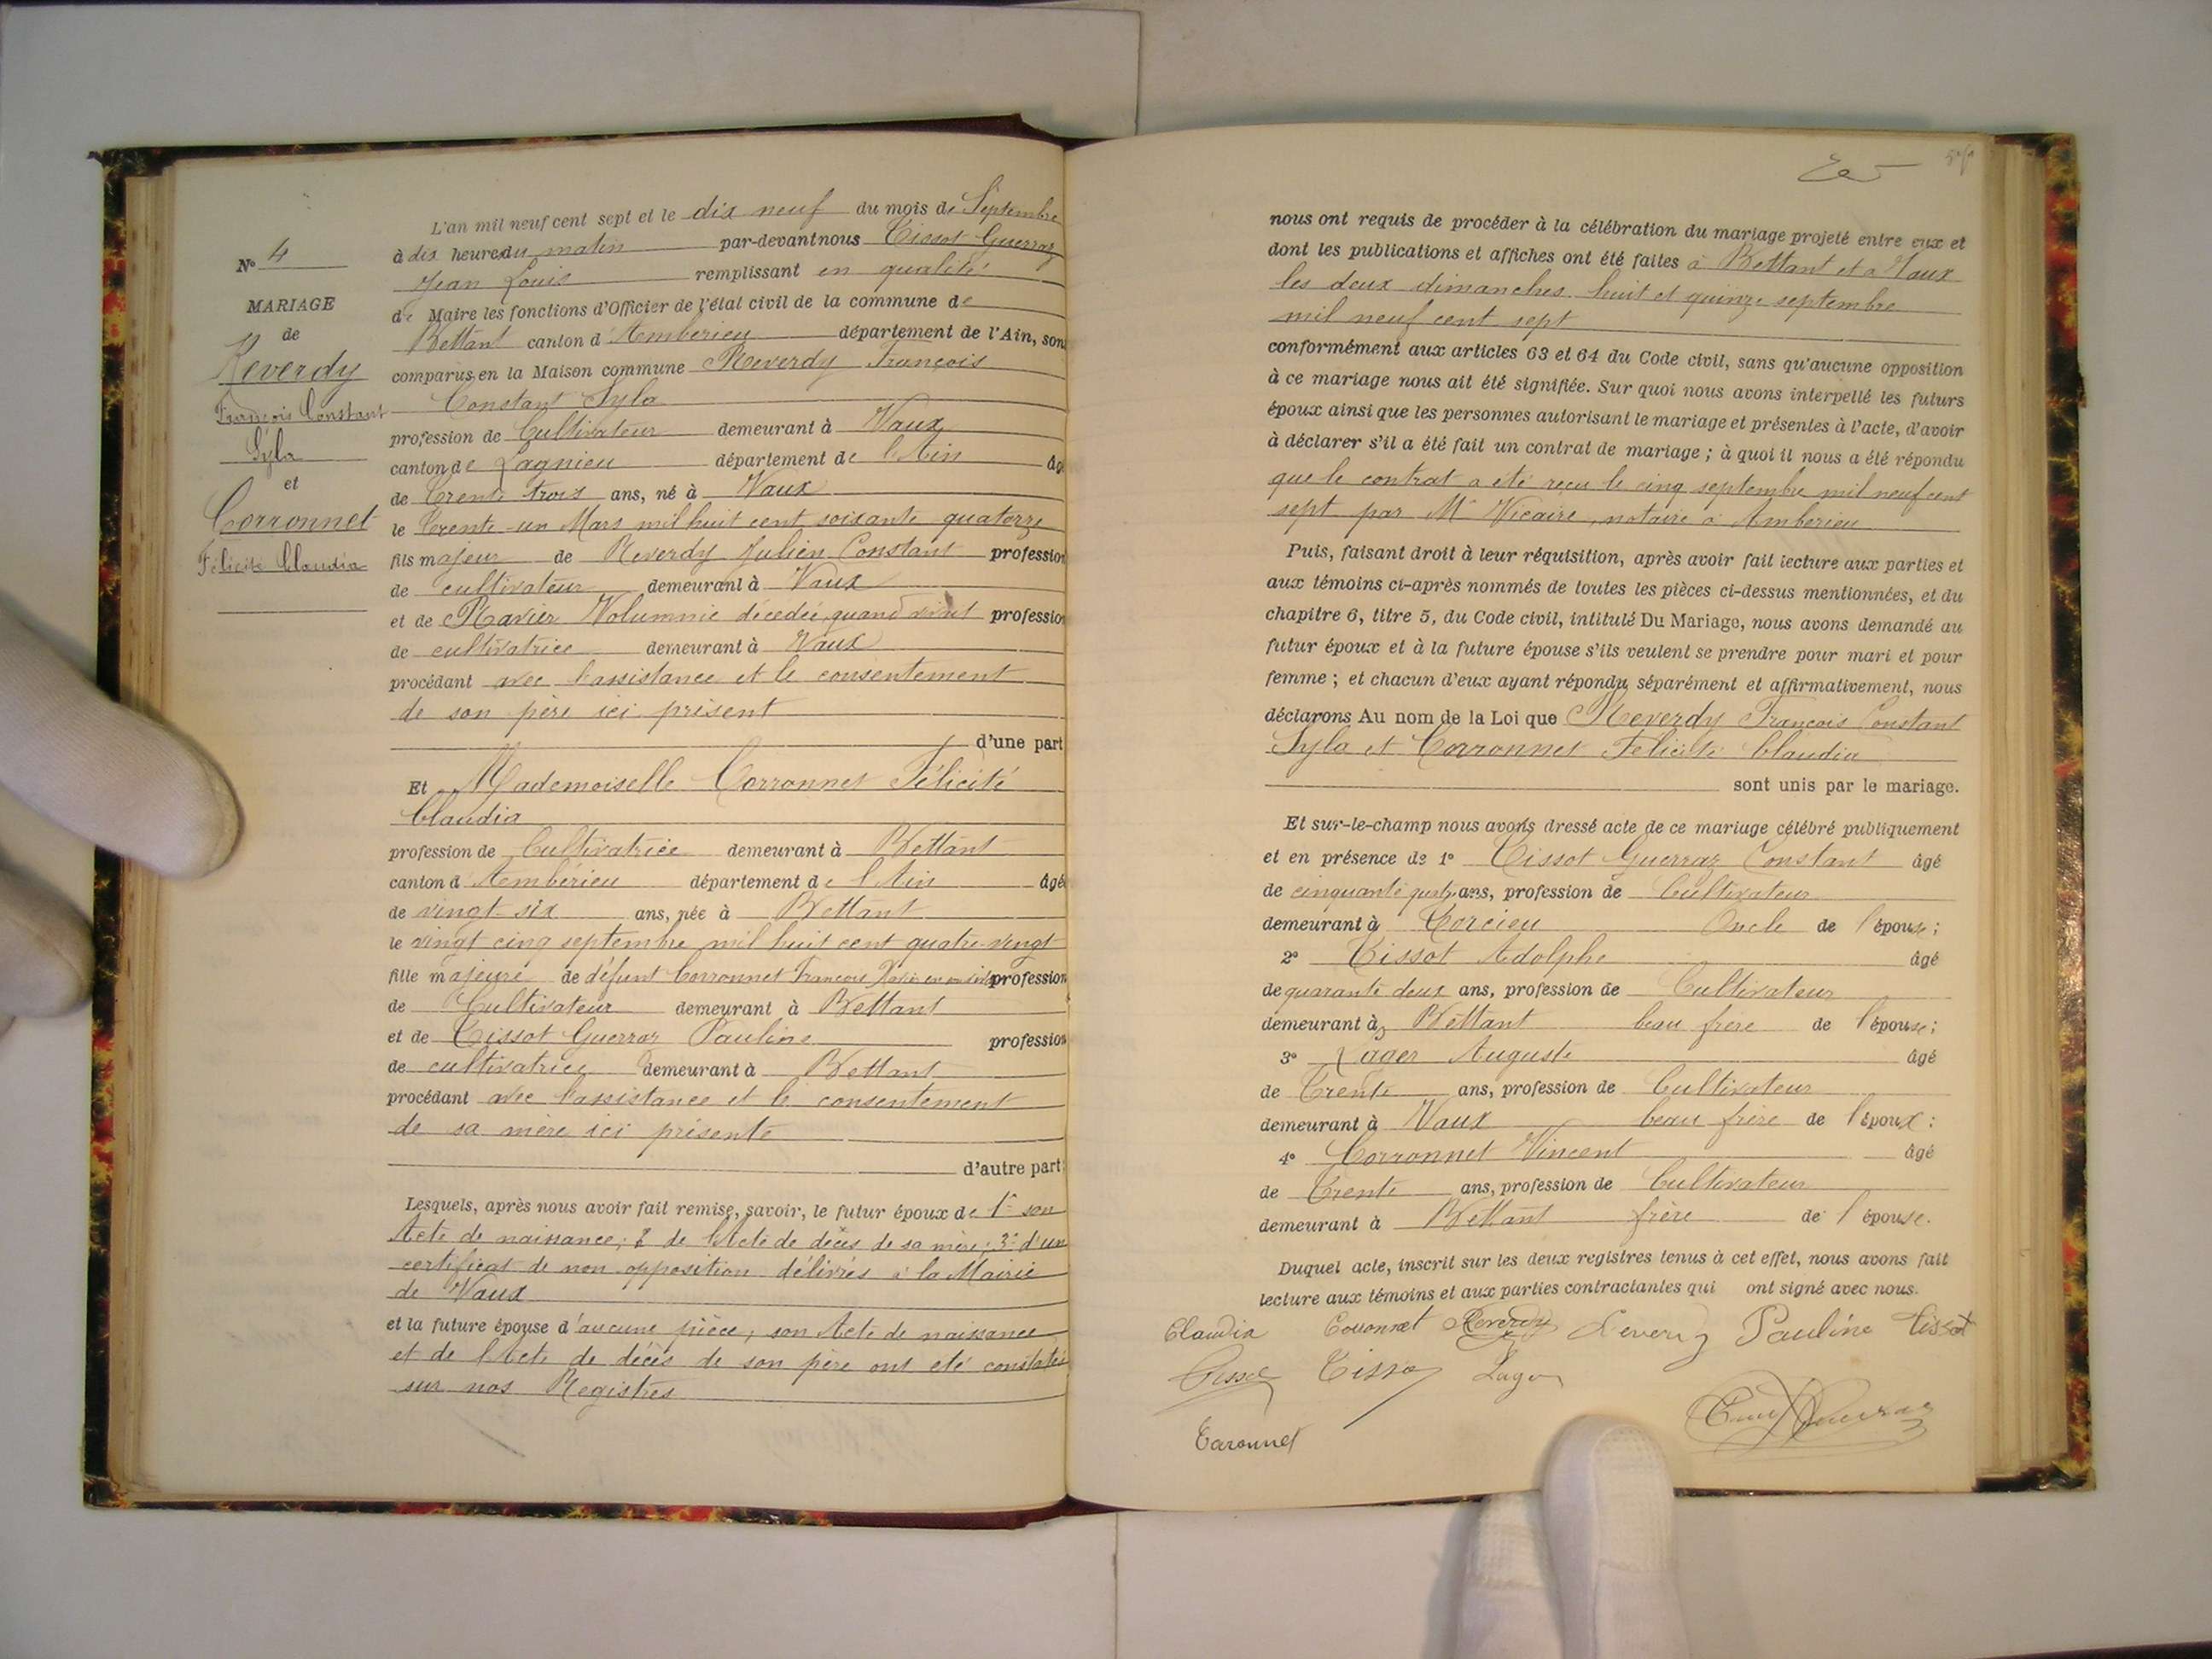 N° 4
MARIAGE
de
Reverdy
François Constant
Syla
et
Corronnet
Félicité Claudia
L'an mil neuf cent sept et le dix neuf du mois de Septembre
à dix heures du matin par-devant nous Tissot Guerraz
Jean Louis remplissant en qualité
de Maire les fonctions d'Officier de l'état civil de la commune de
Bettant canton d'Ambérieu département de l'Ain, sont
comparus en la Maison commune Reverdy François
Constant Syla
profession de Cultivateur demeurant à Vaux
canton de Lagnieu département de l'Ain âgé
de Trente trois ans, né à Vaux
le Trente-un Mars mil huit cent soixante quatorze
fils majeur de Reverdy Julien Constant profession
de cultivateur demeurant à Vaux
et de Ravier Volumnie décédée, quand vivait profession
de cultivatrice demeurant à Vaux
procédant avec l'assistance et le consentement
de son père ici présent
d'une part
Et Mademoiselle Corronnet Félicité
Claudia
profession de Cultivatrice demeurant à Bettant
canton d'Ambérieu département de l'Ain âgée
de vingt-six ans, née à Bettant
le vingt cinq septembre mil huit cent quatre-vingt
fille majeure de défunt Corronnet François profession
de Cultivateur demeurant à Bettant
et de Tissot Guerraz Pauline profession
de cultivatrice demeurant à Bettant
procédant avec l'assistance et le consentement
de sa mère ici présente
d'autre part;
Lesquels, après nous avoir fait remise, savoir, le futur époux de 1° son
Acte de naissance; 2 de l'Acte de décès de sa mère; 3° d'un
certificat de non opposition délivrés à la Mairie
de Vaux
et la future épouse d'aucune pièce, son Acte de naissance
et de l'Acte de décès de son père ont été constatés
sur nos Registres
nous ont requis de procéder à la célébration du mariage projeté entre eux et
dont les publications et affiches ont été faites à Bettant et à Vaux
les deux dimanches huit et quinze septembre
mil neuf cent sept
conformément aux articles 63 et 64 du Code civil, sans qu'aucune opposition
à ce mariage nous ait été signifiée. Sur quoi nous avons interpellé les futurs
époux ainsi que les personnes autorisant le mariage et présentes à l'acte, d'avoir
à déclarer s'il a été fait un contrat de mariage; à quoi il nous a été répondu
que le contrat a été reçu le cinq septembre mil neuf cent
sept par Me Vicaire, notaire à Ambérieu
Puis, faisant droit à leur réquisition, après avoir fait lecture aux parties et
aux témoins ci-après nommés de toutes les pièces ci-dessus mentionnées, et du
chapitre 6, titre 5, du Code civil, intitulé Du Mariage, nous avons demandé au
futur époux et à la future épouse s'ils veulent se prendre pour mari et pour
femme; et chacun d'eux ayant répondu séparément et affirmativement, nous
déclarons Au nom de la Loi que Reverdy François Constant
Syla et Corronnet Félicité Claudia
sont unis par le mariage.
Et sur-le-champ nous avons dressé acte de ce mariage célébré publiquement
et en présence de 1° Tissot Guerraz Constant âgé
de cinquante quatre ans, profession de Cultivateur
demeurant à Torcieu Oncle de l'épouse;
2° Tissot Adolphe âgé
de quarante deux ans, profession de Cultivateur
demeurant à Bettant beau frère de l'épouse;
3° Lager Auguste âgé
de Trente ans, profession de Cultivateur
demeurant à Vaux beau frère de l'époux;
4° Corronnet Vincent âgé
de Trente ans, profession de Cultivateur
demeurant à Bettant frère de l'épouse.
Duquel acte, inscrit sur les deux registres tenus à cet effet, nous avons fait
lecture aux témoins et aux parties contractantes qui ont signé avec nous.
Claudia Coronnet Reverdy Reverdy Pauline Tissot
Tissot Tissot Lager
Caronnet